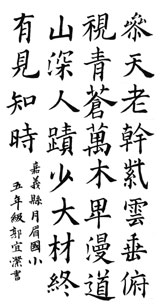 參天老幹紫雲垂俯
視青蒼萬木卑漫道
山深人蹟少大材終
有見知時
嘉義縣月眉國小
五年級郭宜潔書